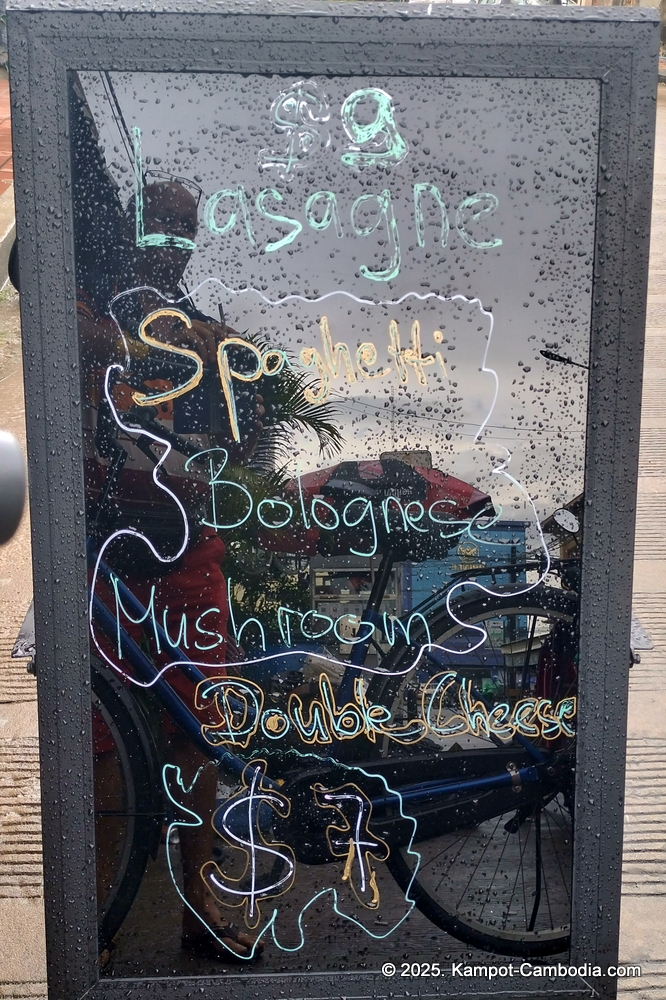 $9
Lasagne
Spaghetti
Bolognese
Mushroom
Double Cheese
$7
© 2025. Kampot-Cambodia.com